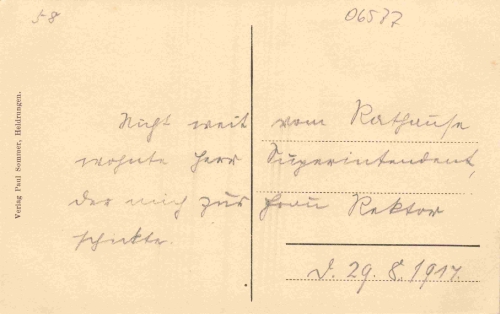 58
06587
Nicht weit vom Rathause
wohnte Herr Superintendent,
der mich zur Frau Rektor
schickte.
D. 29. 8. 1917.
Verlag Paul Sommer, Heldrungen.